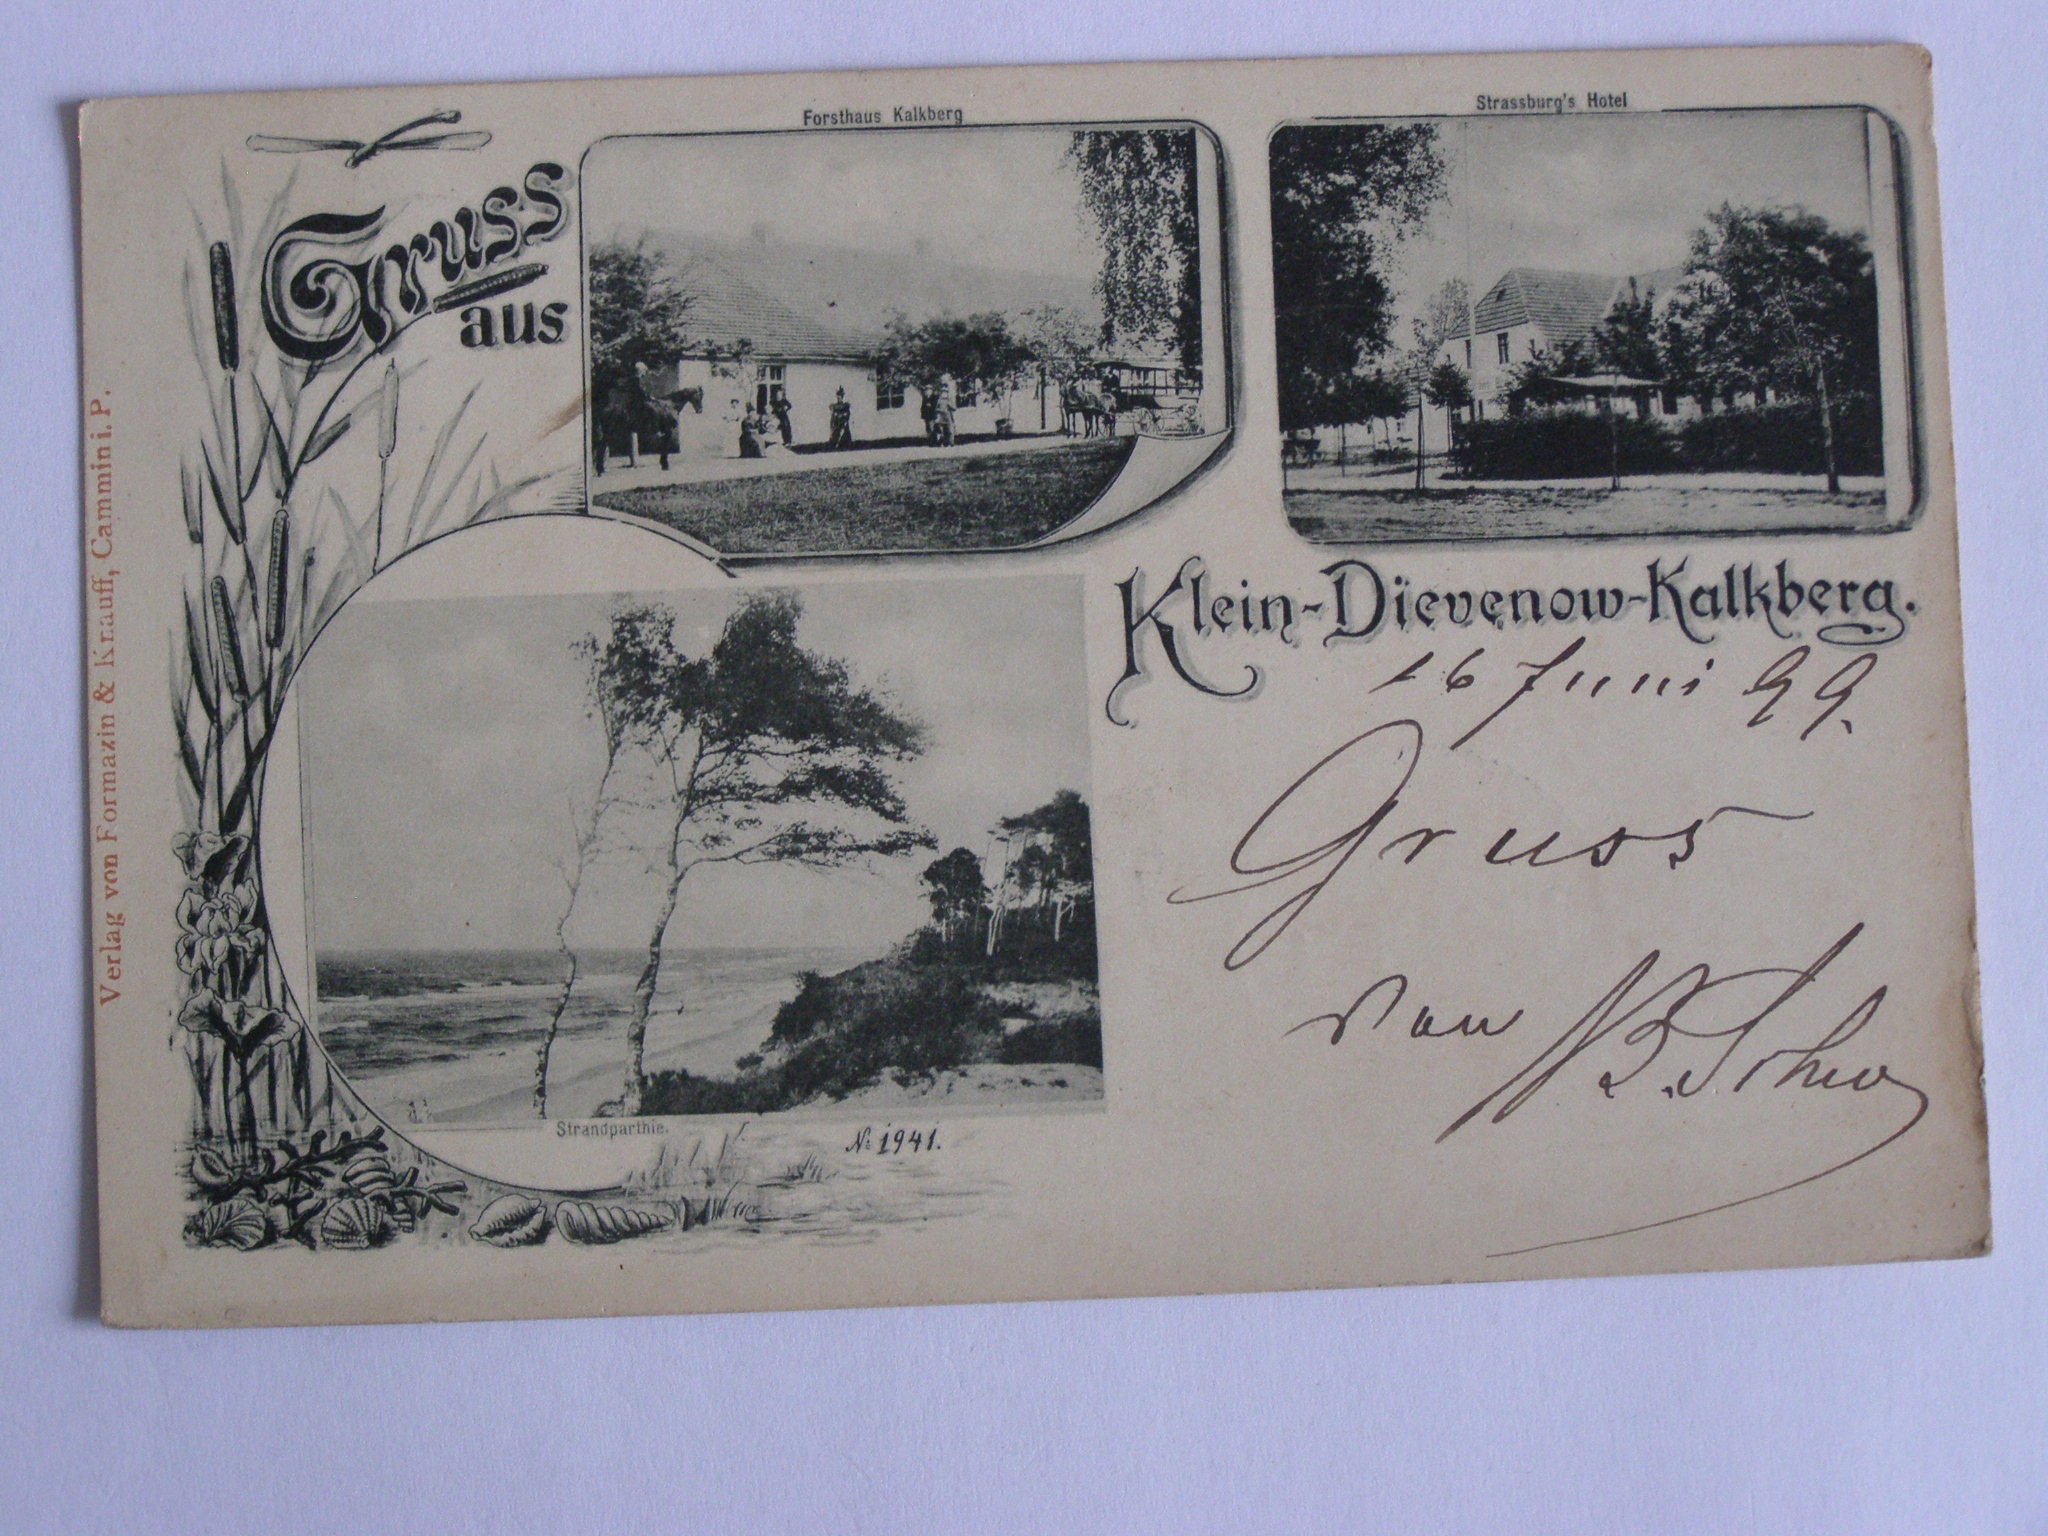 Forsthaus Kalkberg
Strassburg's Hotel
Gruss
aus
Klein-Dievenow-Kalkberg.
16 Juni 99.
Gruss
von
Strandparthie.
N: 1941.
Verlag von Formazin & Knauff, Cammin i. P.